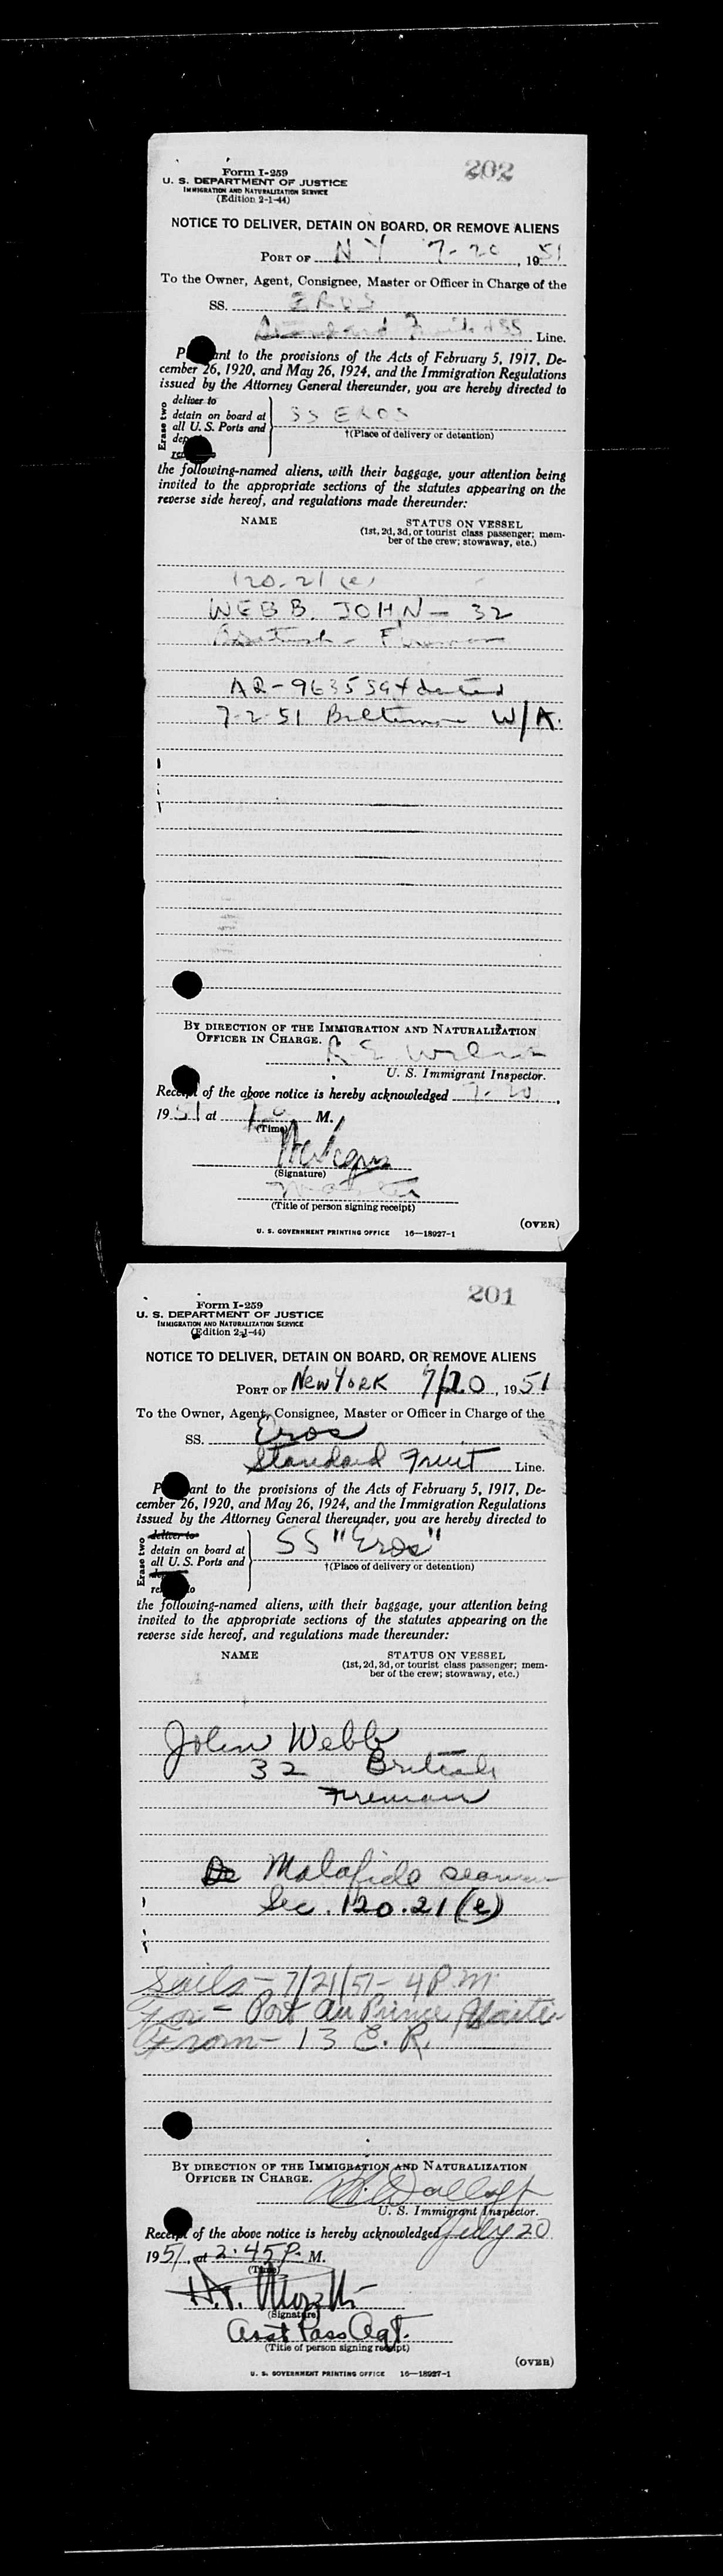 202
Form I-259
U. S. DEPARTMENT OF JUSTICE
IMMIGRATION AND NATURALIZATION SERVICE
(Edition 2-1-44)
NOTICE TO DELIVER, DETAIN ON BOARD, OR REMOVE ALIENS
PORT OF N Y 7-20, 1951
To the Owner, Agent, Consignee, Master or Officer in Charge of the
SS. EROS
Standard Fruit & SS Line.
P ant to the provisions of the Acts of February 5, 1917, De-
cember 26, 1920, and May 26, 1924, and the Immigration Regulations
issued by the Attorney General thereunder, you are hereby directed to
Erase two
deliver to
detain on board at
all U. S. Ports and
dep
re
SS EROS
†(Place of delivery or detention)
the following-named aliens, with their baggage, your attention being
invited to the appropriate sections of the statutes appearing on the
reverse side hereof, and regulations made thereunder:
NAME STATUS ON VESSEL
(1st, 2d, 3d, or tourist class passenger; mem-
ber of the crew; stowaway, etc.)
120.21 (e)
WEBB, JOHN - 32
British - Fireman
AR-9635594
7-2-51 Baltimore W/A.
BY DIRECTION OF THE IMMIGRATION AND NATURALIZATION
OFFICER IN CHARGE.
R. E.
U. S. Immigrant Inspector.
Receipt of the above notice is hereby acknowledged 7-20,
1951 at M.
(Time)
(Signature)
Master
(Title of person signing receipt)
(OVER)
U. S. GOVERNMENT PRINTING OFFICE 16—18927-1
201
Form I-259
U. S. DEPARTMENT OF JUSTICE
IMMIGRATION AND NATURALIZATION SERVICE
(Edition 2-1-44)
NOTICE TO DELIVER, DETAIN ON BOARD, OR REMOVE ALIENS
PORT OF New York 7/20, 1951
To the Owner, Agent, Consignee, Master or Officer in Charge of the
SS. Eros
Standard Fruit Line.
P ant to the provisions of the Acts of February 5, 1917, De-
cember 26, 1920, and May 26, 1924, and the Immigration Regulations
issued by the Attorney General thereunder, you are hereby directed to
Erase two
deliver to
detain on board at
all U. S. Ports and
de
re o
SS "Eros"
†(Place of delivery or detention)
the following-named aliens, with their baggage, your attention being
invited to the appropriate sections of the statutes appearing on the
reverse side hereof, and regulations made thereunder:
NAME STATUS ON VESSEL
(1st, 2d, 3d, or tourist class passenger; mem-
ber of the crew; stowaway, etc.)
John Webb
32 British
Fireman
De Malafide seaman
Sec. 120.21 (e)
Sails - 7/21/51 - 4 P.M.
For - Port au Prince, Haiti
From - 13 E. R.
BY DIRECTION OF THE IMMIGRATION AND NATURALIZATION
OFFICER IN CHARGE.
U. S. Immigrant Inspector.
Receipt of the above notice is hereby acknowledged July 20
1951, at 2:45 P. M.
(Time)
(Signature)
Asst Pass Agt.
(Title of person signing receipt)
(OVER)
U. S. GOVERNMENT PRINTING OFFICE 16—18927-1